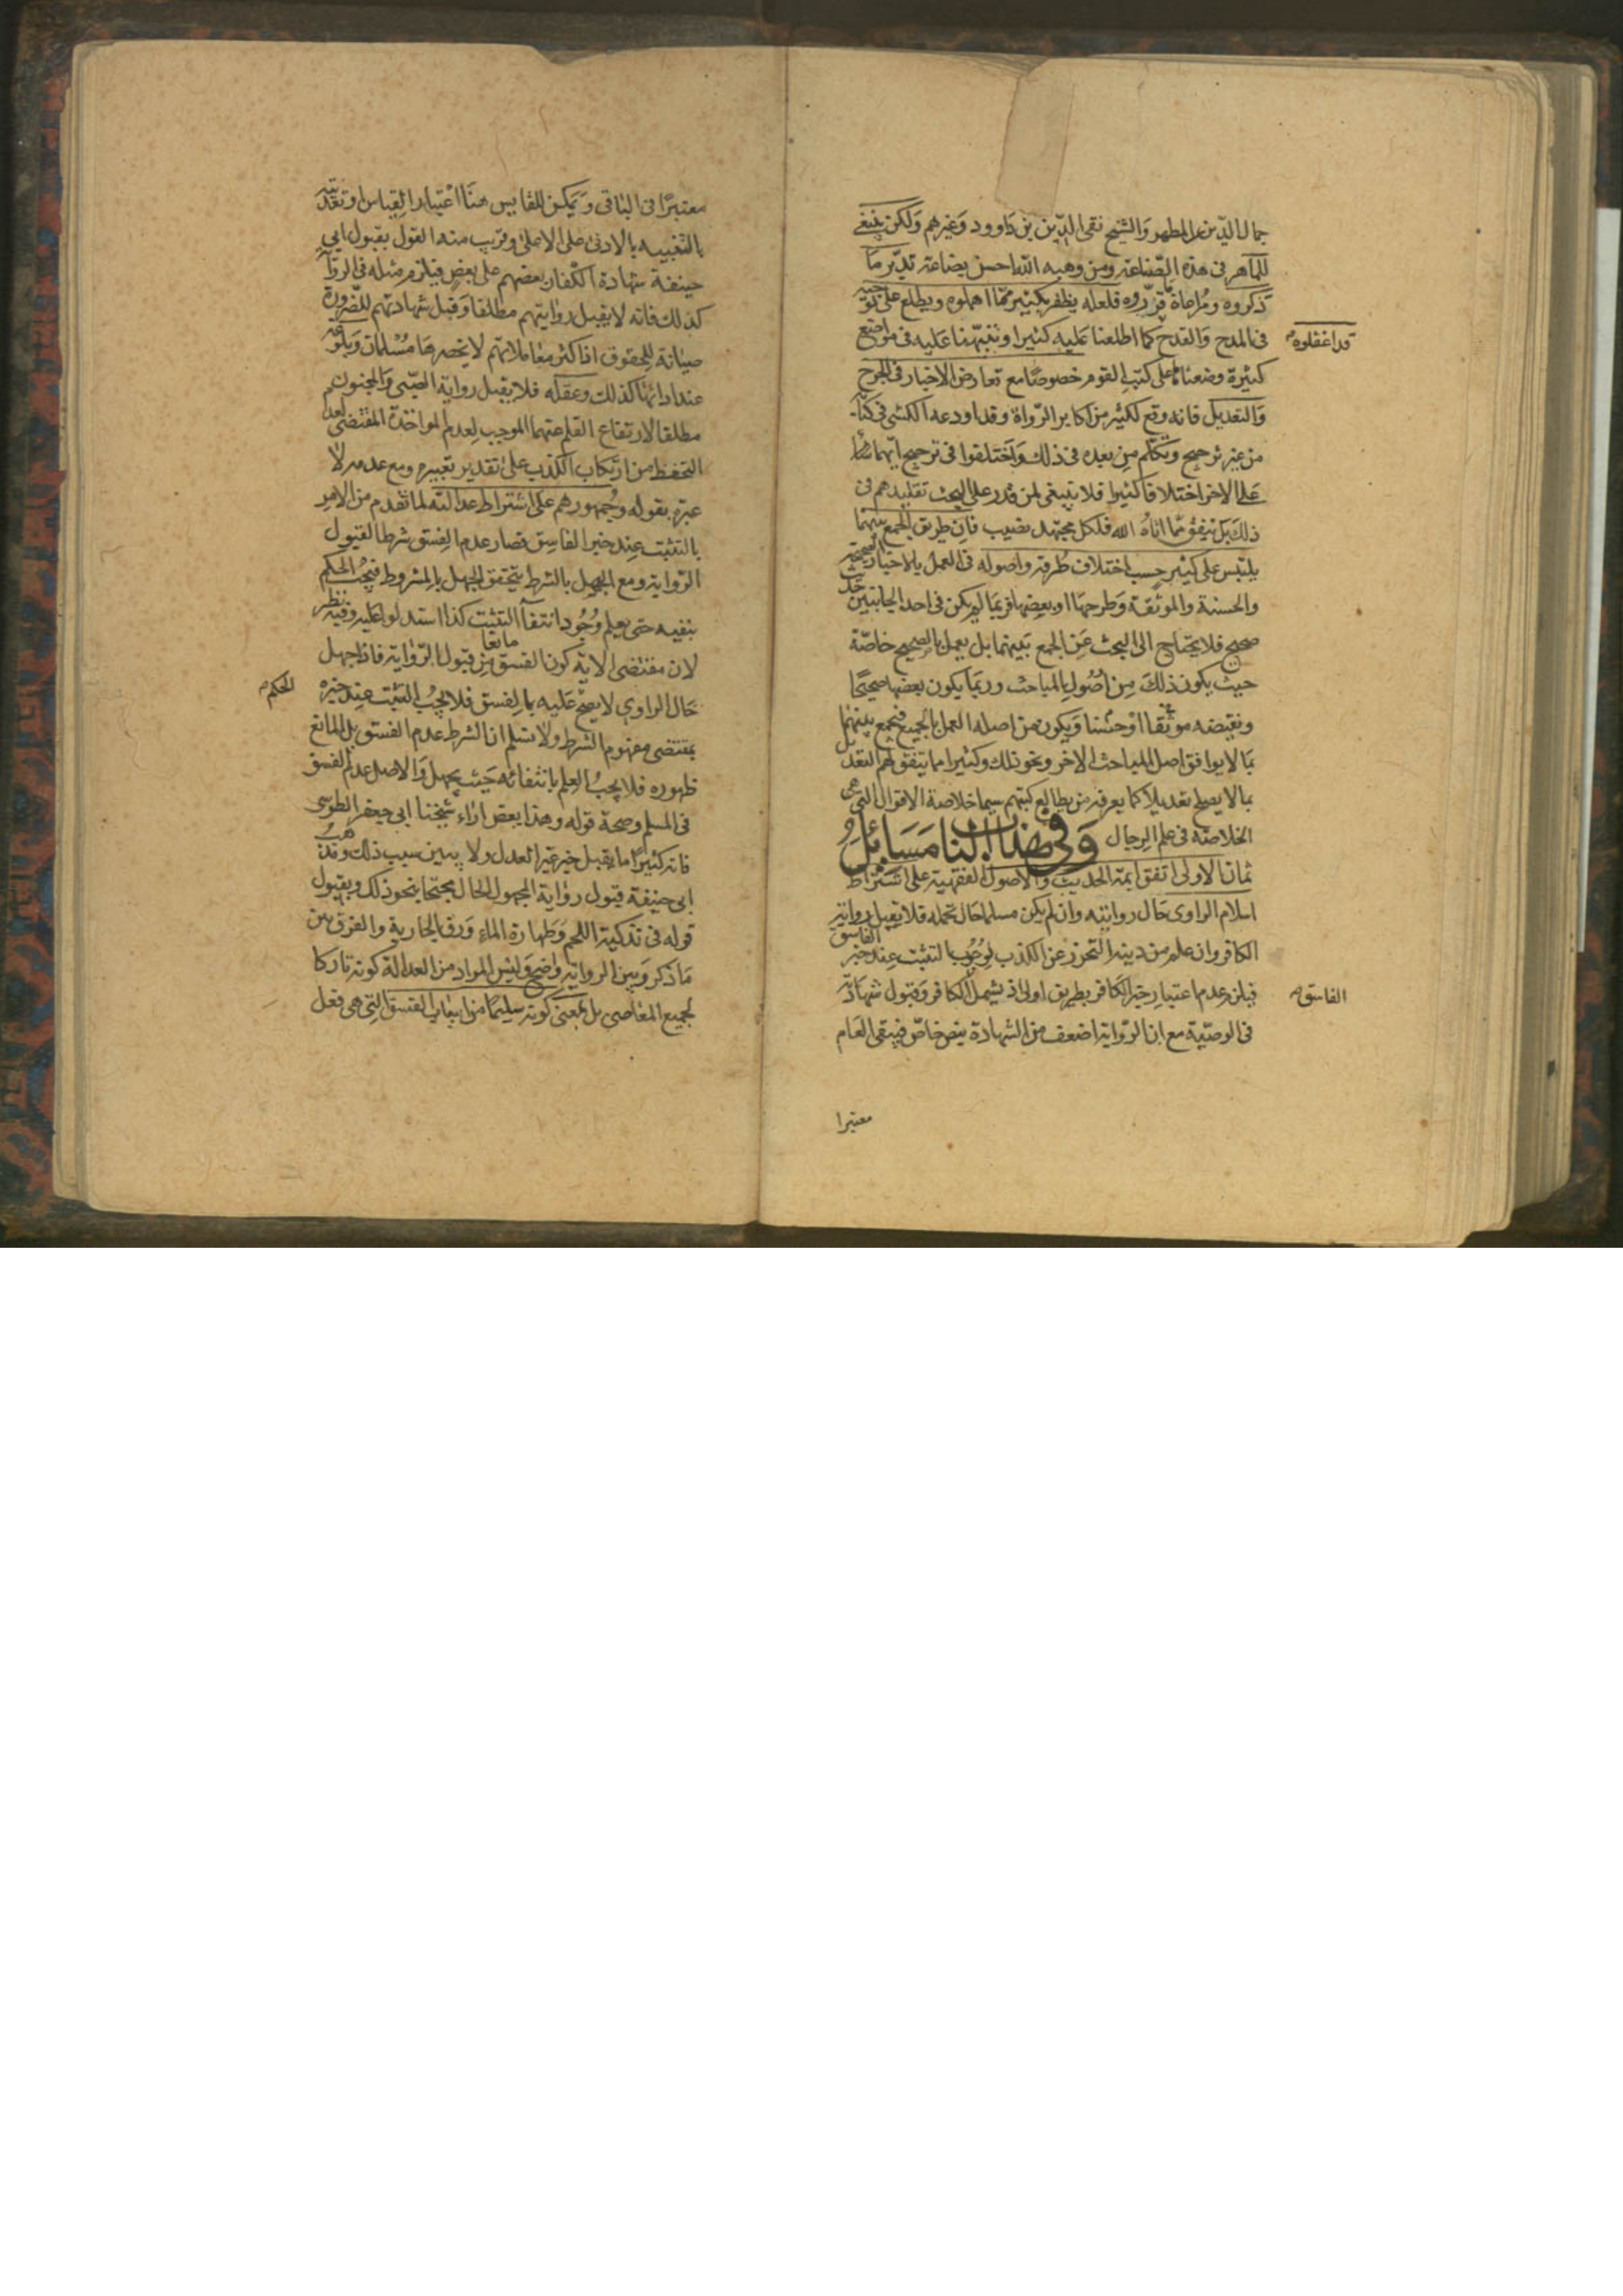 جمال الدين بن المطهر والشيخ تقى الدين بن داوود وغيرهم ولكن ينبغى
للماهر فى هذه الصناعة ومن وهبه الله احسن بضاعة تدبر ما
ذكروه ومراعاة ما قرروه فلعله يظفر بكثير مما اهملوه ويطلع على توجيه
فى المدح والقدح قد اغفلوه كما اطلعنا عليه كثيرا ونبهنا عليه فى مواضع
كثيرة وضعناها على كتب القوم خصوصا مع تعارض الاخبار فى الجرح
والتعديل فانه وقع لكثير من اكابر الرواة وقد اودعه الكشى فى كتابه
من غير ترجيح وتكلم من بعده فى ذلك واختلفوا فى ترجيح ايهما
على الاخر اختلافا كثيرا فلا ينبغى لمن قدر على البحث تقليدهم فى
ذلك بل ينفق مما اتاه الله فلكل مجتهد نصيب فان طريق الجمع بينهما
يلتبس على كثير حسب اختلاف طرقه واصوله فى العمل بالاخبار الصحيحة
والحسنة والموثقة وطرحها او بعضها فربما لم يكن فى احد الجانبين حديث
صحيح فلا يحتاج الى البحث عن الجمع بينهما بل يعمل بالصحيح خاصة
حيث يكون ذلك من اصول الباحث وربما يكون بعضها صحيحا
ونقيضه موثقا او حسنا ويكون من اصله العمل بالجميع فيجمع بينهما
بما لا يوافق اصل الباحث الاخر ونحو ذلك وكثيرا ما يتفق لهم التعديل
بما لا يصلح تعديلا كما يعرفه من يطالع كتبهم سيما خلاصة الاقوال التى هى
الخلاصة فى علم الرجال وفى هذا الباب مسائل
ثمان الاولى اتفق ائمة الحديث والاصول الفقهية على اشتراط
اسلام الراوى حال روايته وان لم يكن مسلما حال تحمله فلا يقبل رواية
الكافر وان علم من دينه التحرز عن الكذب لوجوب التثبت عند خبر الفاسق
فيلزم عدم اعتبار خبر الكافر بطريق اولى اذ يشمل الفاسق الكافر وقبول شهادته
فى الوصية مع ان الرواية اضعف من الشهادة بنص خاص فيبقى العام
معتبرا
معتبرا فى الباقى ويمكن للقايس هنا اعتبار القياس او تعديته
بالتنبيه بالادنى على الاعلى وقريب منه القول بقبول ابى
حنيفة شهادة الكفار بعضهم على بعض فيلزم مثله فى الرواية
كذلك فانه لا يقبل روايتهم مطلقا وقبل شهادتهم للضرورة
صيانة للحقوق اذ اكثر معاملاتهم لا يحضرها مسلمان وبلوغه
عند ادائها كذلك وعقله فلا يقبل رواية الصبى والمجنون
مطلقا لارتفاع القلم عنهما الموجب لعدم المواخذة المقتضى لعدم
التحفظ من ارتكاب الكذب على تقدير تمييزه ومع عدمه لا
عبرة بقوله وجمهورهم على اشتراط عدالته لما تقدم من الامر
بالتثبت عند خبر الفاسق فصار عدم الفسق شرطا لقبول
الرواية ومع الجهل بالشرط يتحقق الجهل بالمشروط فيجب الحكم
بنفيه حتى يعلم وجود انتفاء التثبت كذا استدلوا عليه وفيه نظر
لان مقتضى الاية كون الفسق مانعا من قبول الرواية فاذا جهل
حال الراوى لا يصح الحكم عليه بالفسق فلا يجب التثبت عند خبره
بمقتضى مفهوم الشرط ولا نسلم ان الشرط عدم الفسق بل المانع
ظهوره فلا يجب العلم بانتفائه حيث يجهل والاصل عدم الفسق
فى المسلم وصحة قوله وهذا بعض اراء شيخنا ابى جعفر الطوسى
فانه كثيرا ما يقبل خبر غير العدل ولا يبين سبب ذلك ومذهب
ابى حنيفة قبول رواية المجهول الحال محتجا بنحو ذلك وبقبول
قوله فى تذكية اللحم وطهارة الماء ورق الجارية والفرق بين
ما ذكر وبين الرواية واضح وليس المراد من العدالة كونه تاركا
لجميع المعاصى بل بمعنى كونه سليما من اسباب الفسق التى هى فعل